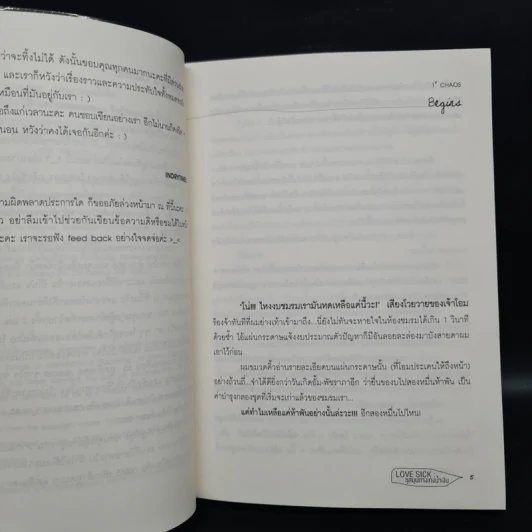 ว่าจะทิ้งไม่ได้ ดังนั้นขอบคุณทุกคนมากนะคะที่มี
และเราก็หวังว่าเรื่องราวและความประทับใจทั้งหมด
เหมือนที่มันอยู่กับเรา : )
ถึงแก่เวลานะคะ คนชอบเขียนอย่างเรา อีกไม่นานก็คง
นอน หวังว่าคงได้เจอกันอีกค่ะ : )
INDRYTIME
ามผิดพลาดประการใด ก็ขออภัยล่วงหน้ามา ณ ที่นี้นะคะ
ว อย่าลืมเข้าไปช่วยกันเขียนข้อความติหรือชมได้ใน
ะคะ เราจะรอฟัง feed back อย่างใจจดจ่อค่ะ >_<
1st CHAOS
Begins
"โน่!!! ไหงงบชมรมเรามันหดเหลือแค่นี้วะ!" เสียงโวยวายของเจ้าโอม
ร้องจ้าทันทีที่ผมย่างเท้าเข้ามาถึง...นี่ยังไม่ทันจะหายใจในห้องชมรมได้เกิน 1 วินาที
ด้วยซ้ำ ไอ้แผ่นกระดาษแจ้งงบประมาณตัวปัญหาก็มีอันลอยละล่องมาบังสายตาผม
เอาไว้ก่อน
ผมขมวดคิ้วอ่านรายละเอียดบนแผ่นกระดาษนั้น (ที่โอมประเคนให้ถึงหน้า)
อย่างอ้วนถี่...จำได้ดียิ่งกว่าวันเกิดอั้ม-พัชราภาอีก ว่ายื่นของบไปสองหมื่นห้าพัน เป็น
ค่าบำรุงกลองชุดที่เริ่มจะเก่าแล้วของชมรมเรา...
แต่ทำไมเหลือแค่ห้าพันอย่างนั้นล่ะวะ!!! อีกสองหมื่นไปไหน!
LOVE SICK
ชุลมุนกางเกงน้ำเงิน
5